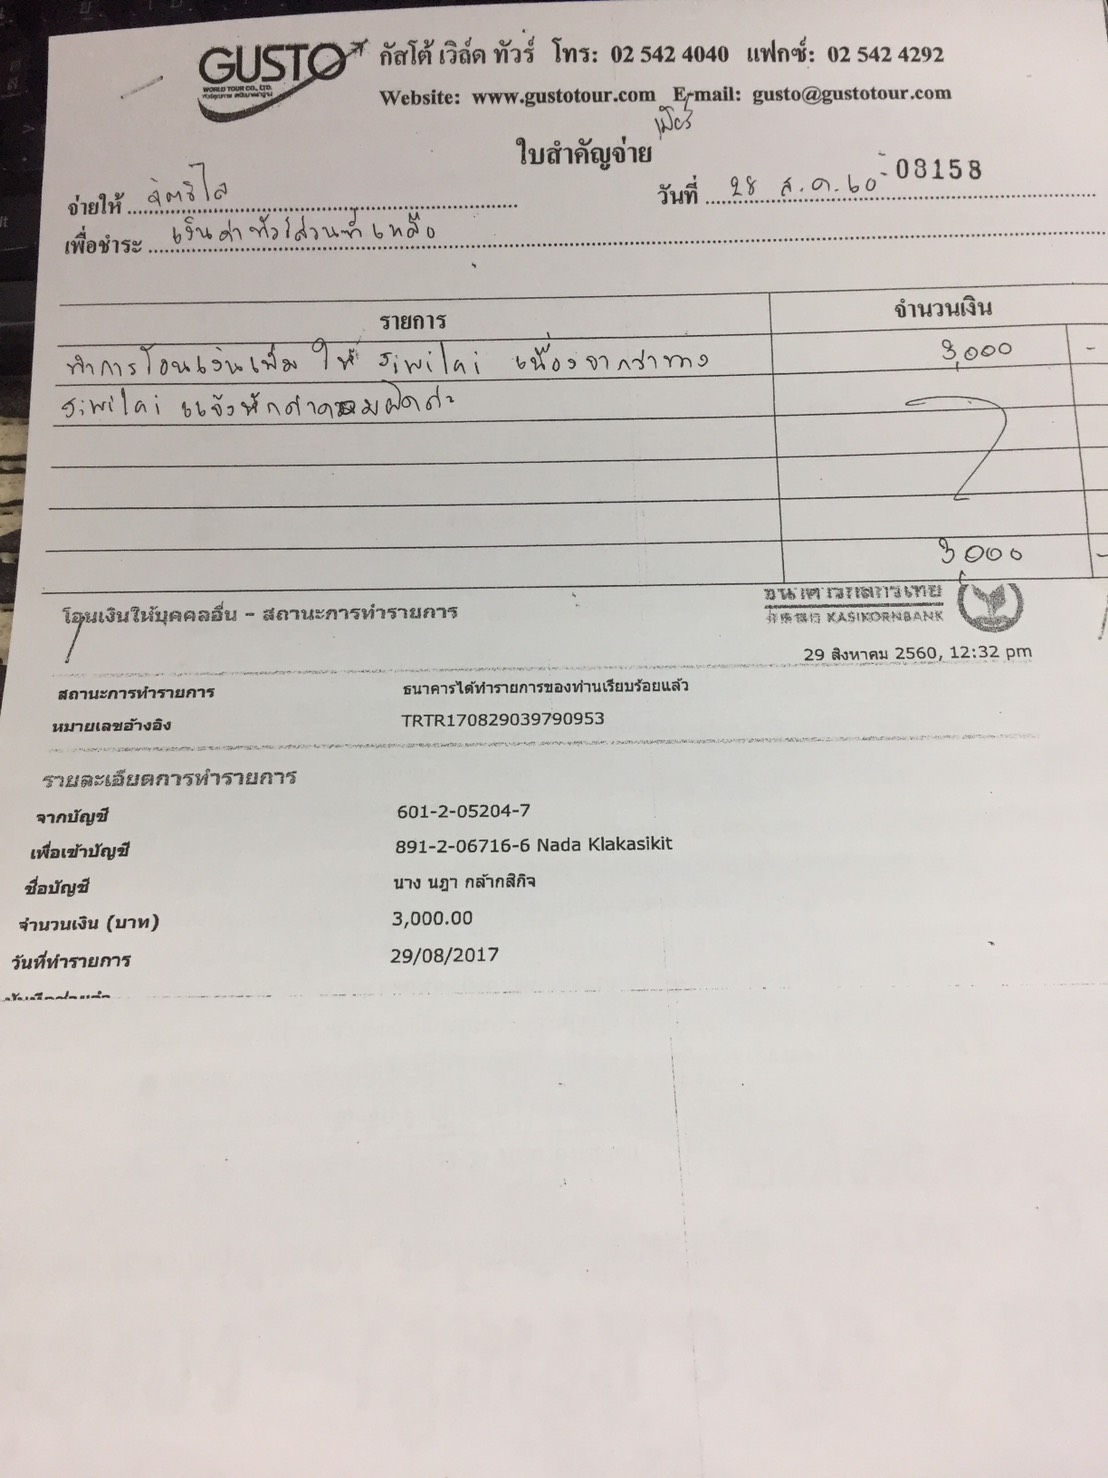 GUSTO
WORLD TOUR CO., LTD.
กัสโต้ เวิล์ด ทัวร์ โทร: 02 542 4040 แฟกซ์: 02 542 4292
Website: www.gustotour.com E-mail: gusto@gustotour.com
ใบสำคัญจ่าย
03158
จ่ายให้
วันที่ 28 ส.ค. 60
เพื่อชำระ เงินค่าทัวร์ส่วนที่เหลือ
รายการ จำนวนเงิน
ทำการโอนเงินเพิ่ม ให้ siwilai เนื่องจากทาง 3,000 -
siwilai แจ้งหักค่า
3,000 -
โอนเงินให้บุคคลอื่น - สถานะการทำรายการ
ธนาคารกสิกรไทย
KASIKORNBANK
29 สิงหาคม 2560, 12:32 pm
สถานะการทำรายการ ธนาคารได้ทำรายการของท่านเรียบร้อยแล้ว
หมายเลขอ้างอิง TRTR170829039790953
รายละเอียดการทำรายการ
จากบัญชี 601-2-05204-7
เพื่อเข้าบัญชี 891-2-06716-6 Nada Klakasikit
ชื่อบัญชี นาง นฎา กล้ากสิกิจ
จำนวนเงิน (บาท) 3,000.00
วันที่ทำรายการ 29/08/2017